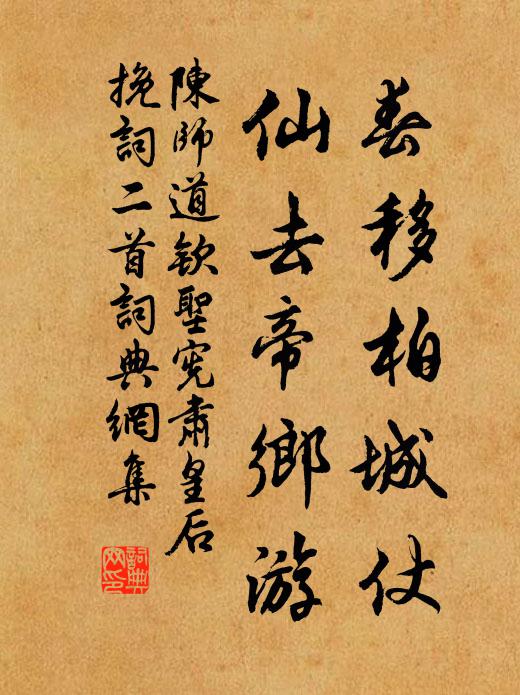 春移柏城仗
仙去帝鄉游
陳師道欽聖憲肅皇后
挽詞二首詞典網集
詞典網印